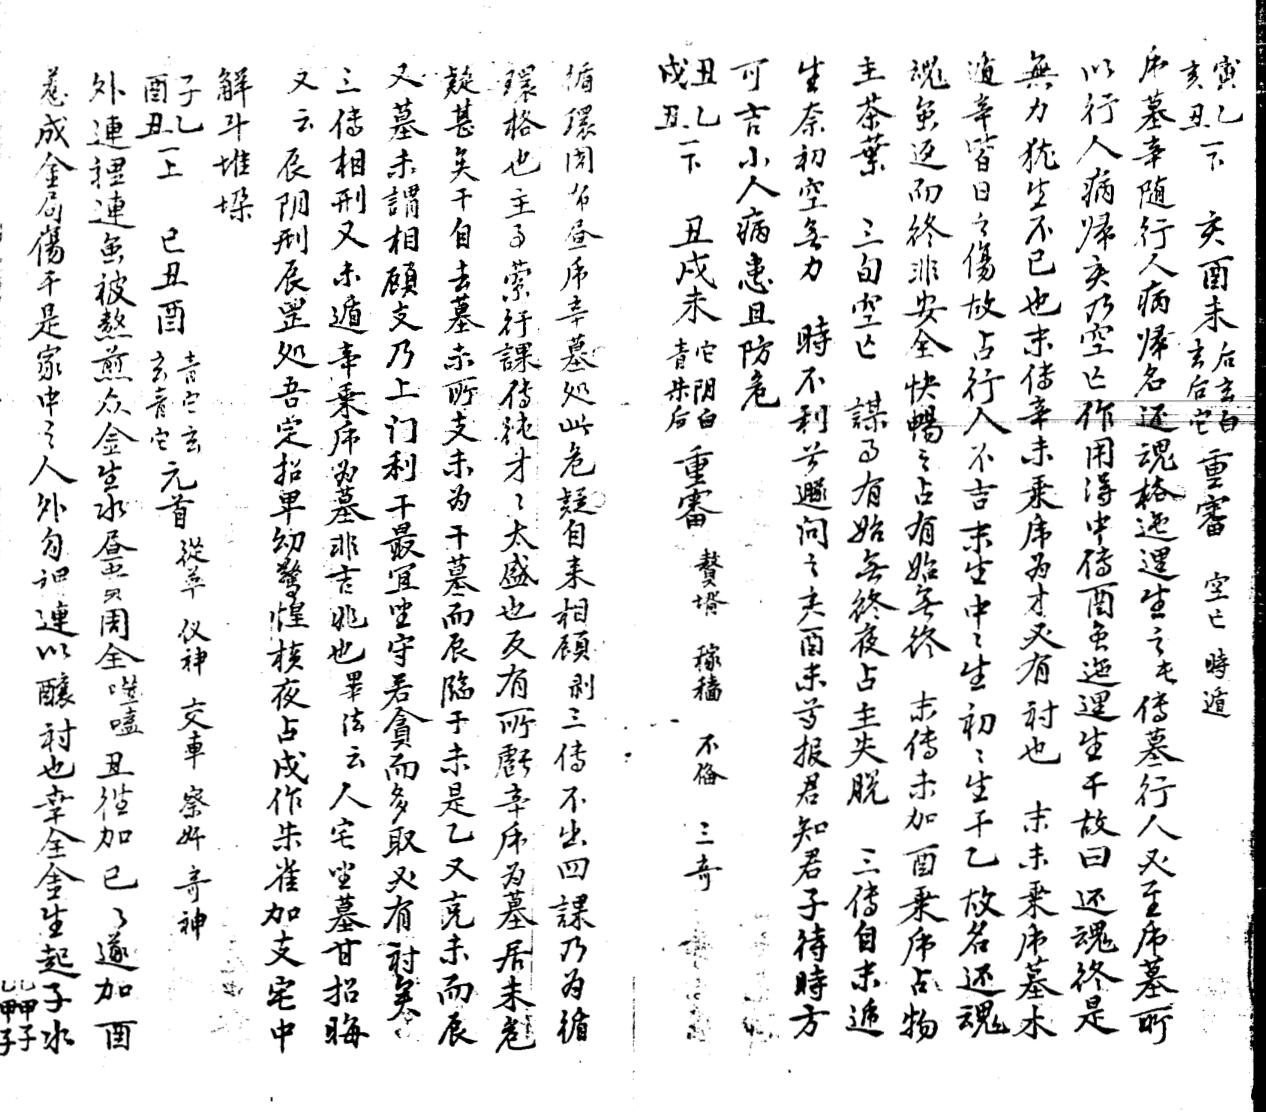 寅乙 亥丑一下 亥酉未 后玄白 玄后它 重審 空亡 時遁
虎墓辛随行人病帰名还魂格迤逦生之七傳墓行人必至虎墓所
以行人病帰亥乃空亡作用得中傳酉虽迤逦生干故曰还魂終是
無力犹生不已也末傳辛未乗虎为才必有衬也 末未乗虎墓木
遁辛皆日之傷故占行人不吉末生中之生初之生干乙故名还魂
魂虽返而終非安全快暢之占有始无終 末傳未加酉乗虎占物
主茶葉 三旬空亡 謀事有始無終夜占主失脱 三傳自末遞
生奈初空無力 時不利兮遯问之亥酉未兮报君知君子待時方
可吉小人病患且防危
丑乙 戌丑一下 丑戌未 它阴白 青朱后 重審 贅壻 稼穡 不俻 三奇
循環周分昼虎辛墓処此危疑自来相顾剥三傳不出四課乃为循
環格也主事萦行課傳純才之太盛也反有所虧辛虎为墓居未危
疑甚矣干自去墓未所支未为干墓而辰臨于未是乙又克未而辰
又墓未謂相顾支乃上门利干最宜坐守若貪而多取必有衬矣
三傳相刑又未遁辛乗虎为墓非吉兆也畢法云人宅坐墓甘招晦
又云辰阴刑辰罡処吾定招卑幼驚惶核夜占戌作朱雀加支宅中
解斗堆垛
子乙 酉丑一上 巳丑酉 青它玄 玄青它 元首 從革 仪神 交車 察奸 奇神
外連裡連虽被熬煎众金生水昼周全噬嗑丑徃加巳巳遂加酉
惹成金局傷干是家中之人外勾裡連以釀衬也幸全金生起子水
乙甲子
乙甲子